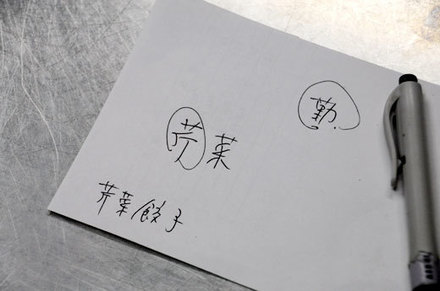 勤
芹菜
芹菜餃子